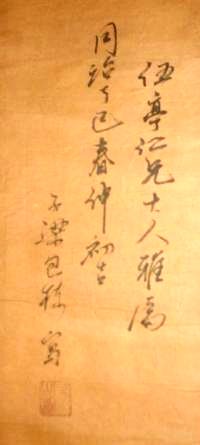 伍亭仁兄大人雅属
同治丁巳春仲初吉
子梁包棟寫